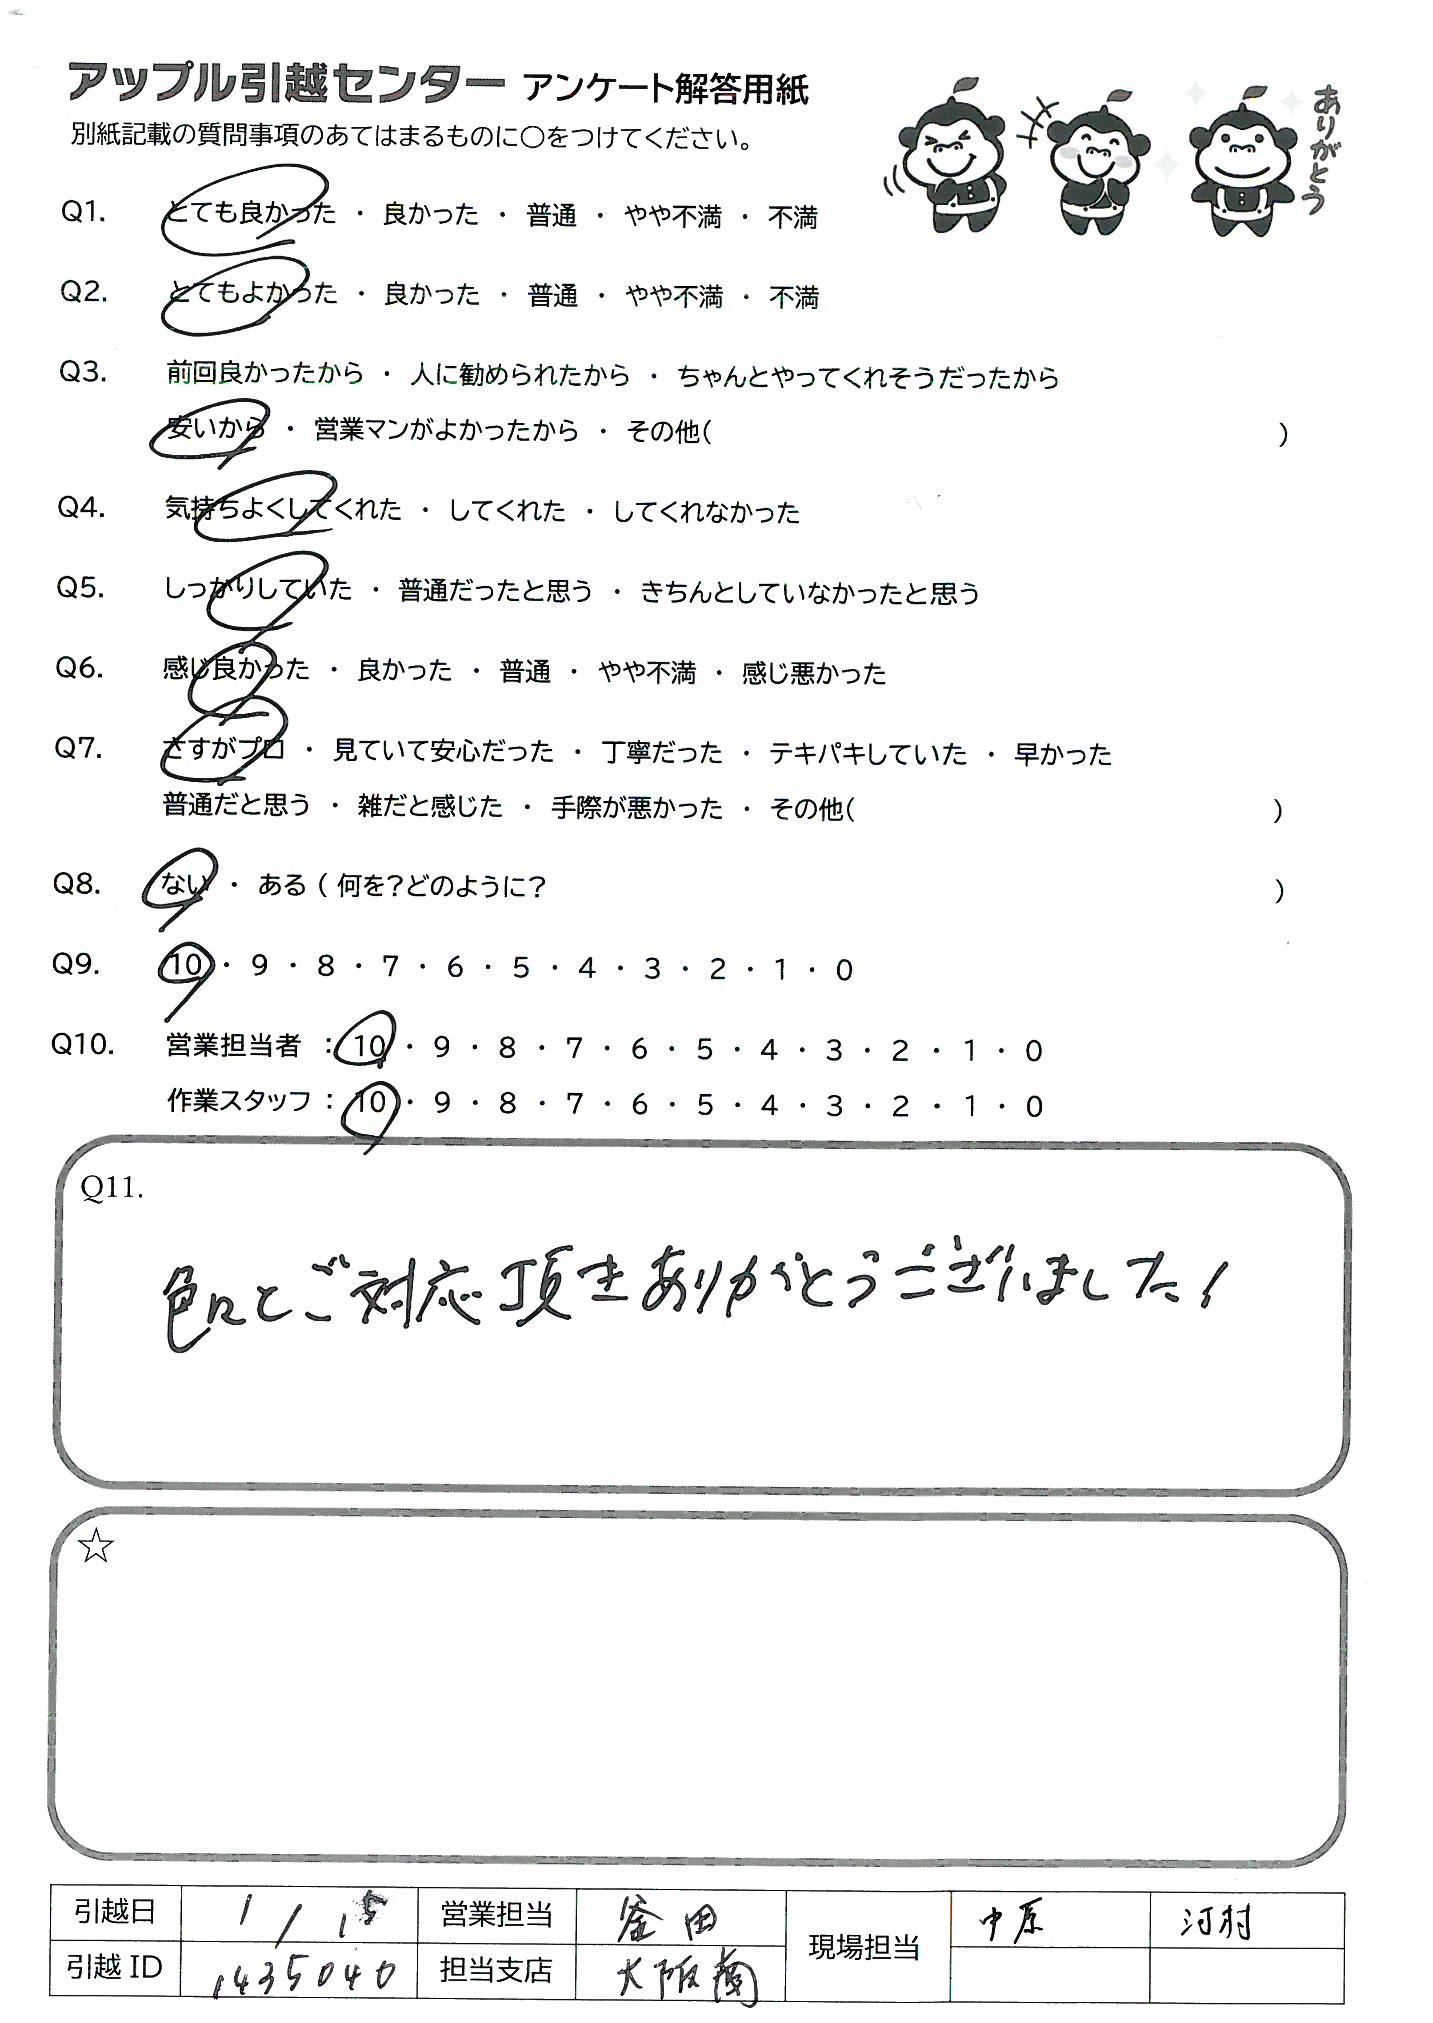 アップル引越センター アンケート解答用紙
ありがとう
別紙記載の質問事項のあてはまるものに○をつけてください。
Q1. とても良かった ・ 良かった ・ 普通 ・ やや不満 ・ 不満
Q2. とてもよかった ・ 良かった ・ 普通 ・ やや不満 ・ 不満
Q3. 前回良かったから ・ 人に勧められたから ・ ちゃんとやってくれそうだったから
安いから ・ 営業マンがよかったから ・ その他( )
Q4. 気持ちよくしてくれた ・ してくれた ・ してくれなかった
Q5. しっかりしていた ・ 普通だったと思う ・ きちんとしていなかったと思う
Q6. 感じ良かった ・ 良かった ・ 普通 ・ やや不満 ・ 感じ悪かった
Q7. さすがプロ ・ 見ていて安心だった ・ 丁寧だった ・ テキパキしていた ・ 早かった
普通だと思う ・ 雑だと感じた ・ 手際が悪かった ・ その他( )
Q8. ない ・ ある ( 何を?どのように? )
Q9. 10 ・ 9 ・ 8 ・ 7 ・ 6 ・ 5 ・ 4 ・ 3 ・ 2 ・ 1 ・ 0
Q10. 営業担当者 : 10 ・ 9 ・ 8 ・ 7 ・ 6 ・ 5 ・ 4 ・ 3 ・ 2 ・ 1 ・ 0
作業スタッフ : 10 ・ 9 ・ 8 ・ 7 ・ 6 ・ 5 ・ 4 ・ 3 ・ 2 ・ 1 ・ 0
Q11.
色々とご対応頂きありがとうございました!
☆
引越日 1/15 営業担当 釜田 現場担当 中原 河村
引越ID 1435040 担当支店 大阪南